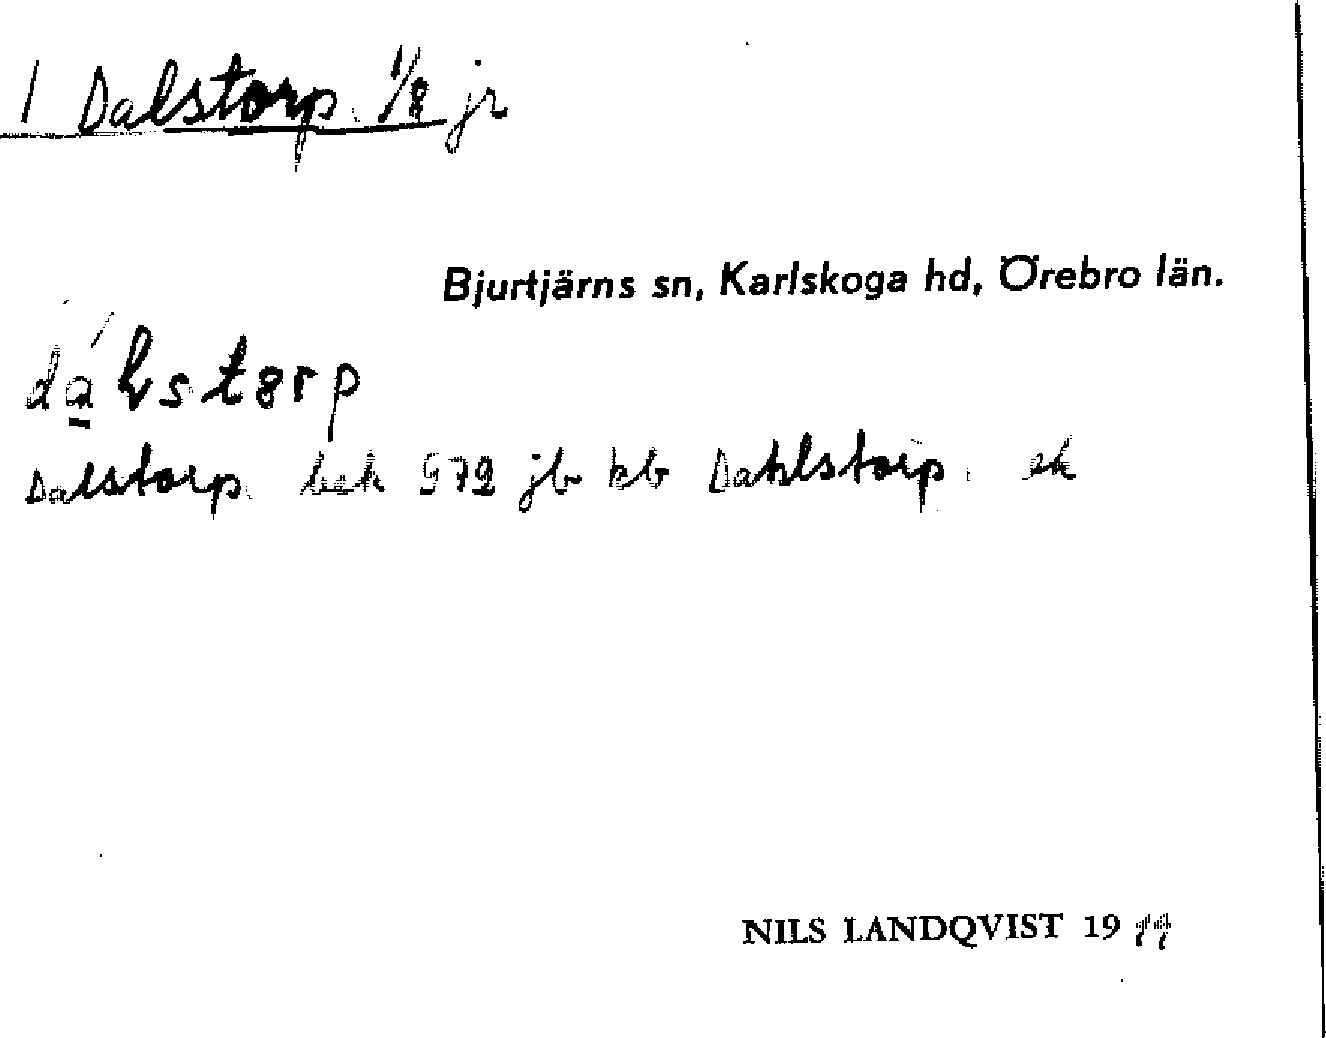 1 Dalstorp 1/8 jr
Bjurtjärns sn, Karlskoga hd, Örebro län.
Dalstorp. bek 972 jb kb Dahlstorp. ek
NILS LANDQVIST 19